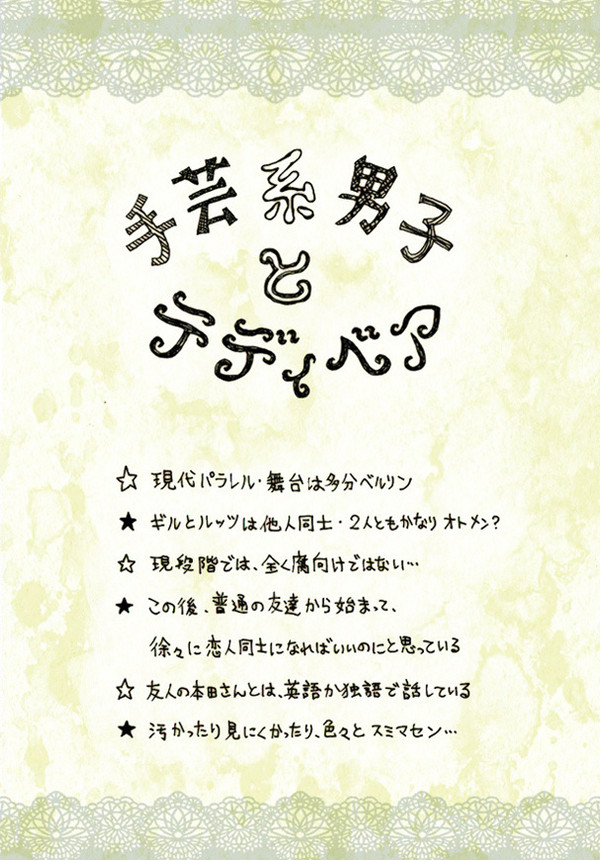 手芸系男子
と
テディベア
☆ 現代パラレル・舞台は多分ベルリン
★ ギルとルッツは他人同士・2人ともかなりオトメン?
☆ 現段階では、全く腐向けではない…
★ この後、普通の友達から始まって、
徐々に恋人同士になればいいのにと思っている
☆ 友人の本田さんとは、英語か独語で話している
★ 汚かったり見にくかったり、色々とスミマセン…